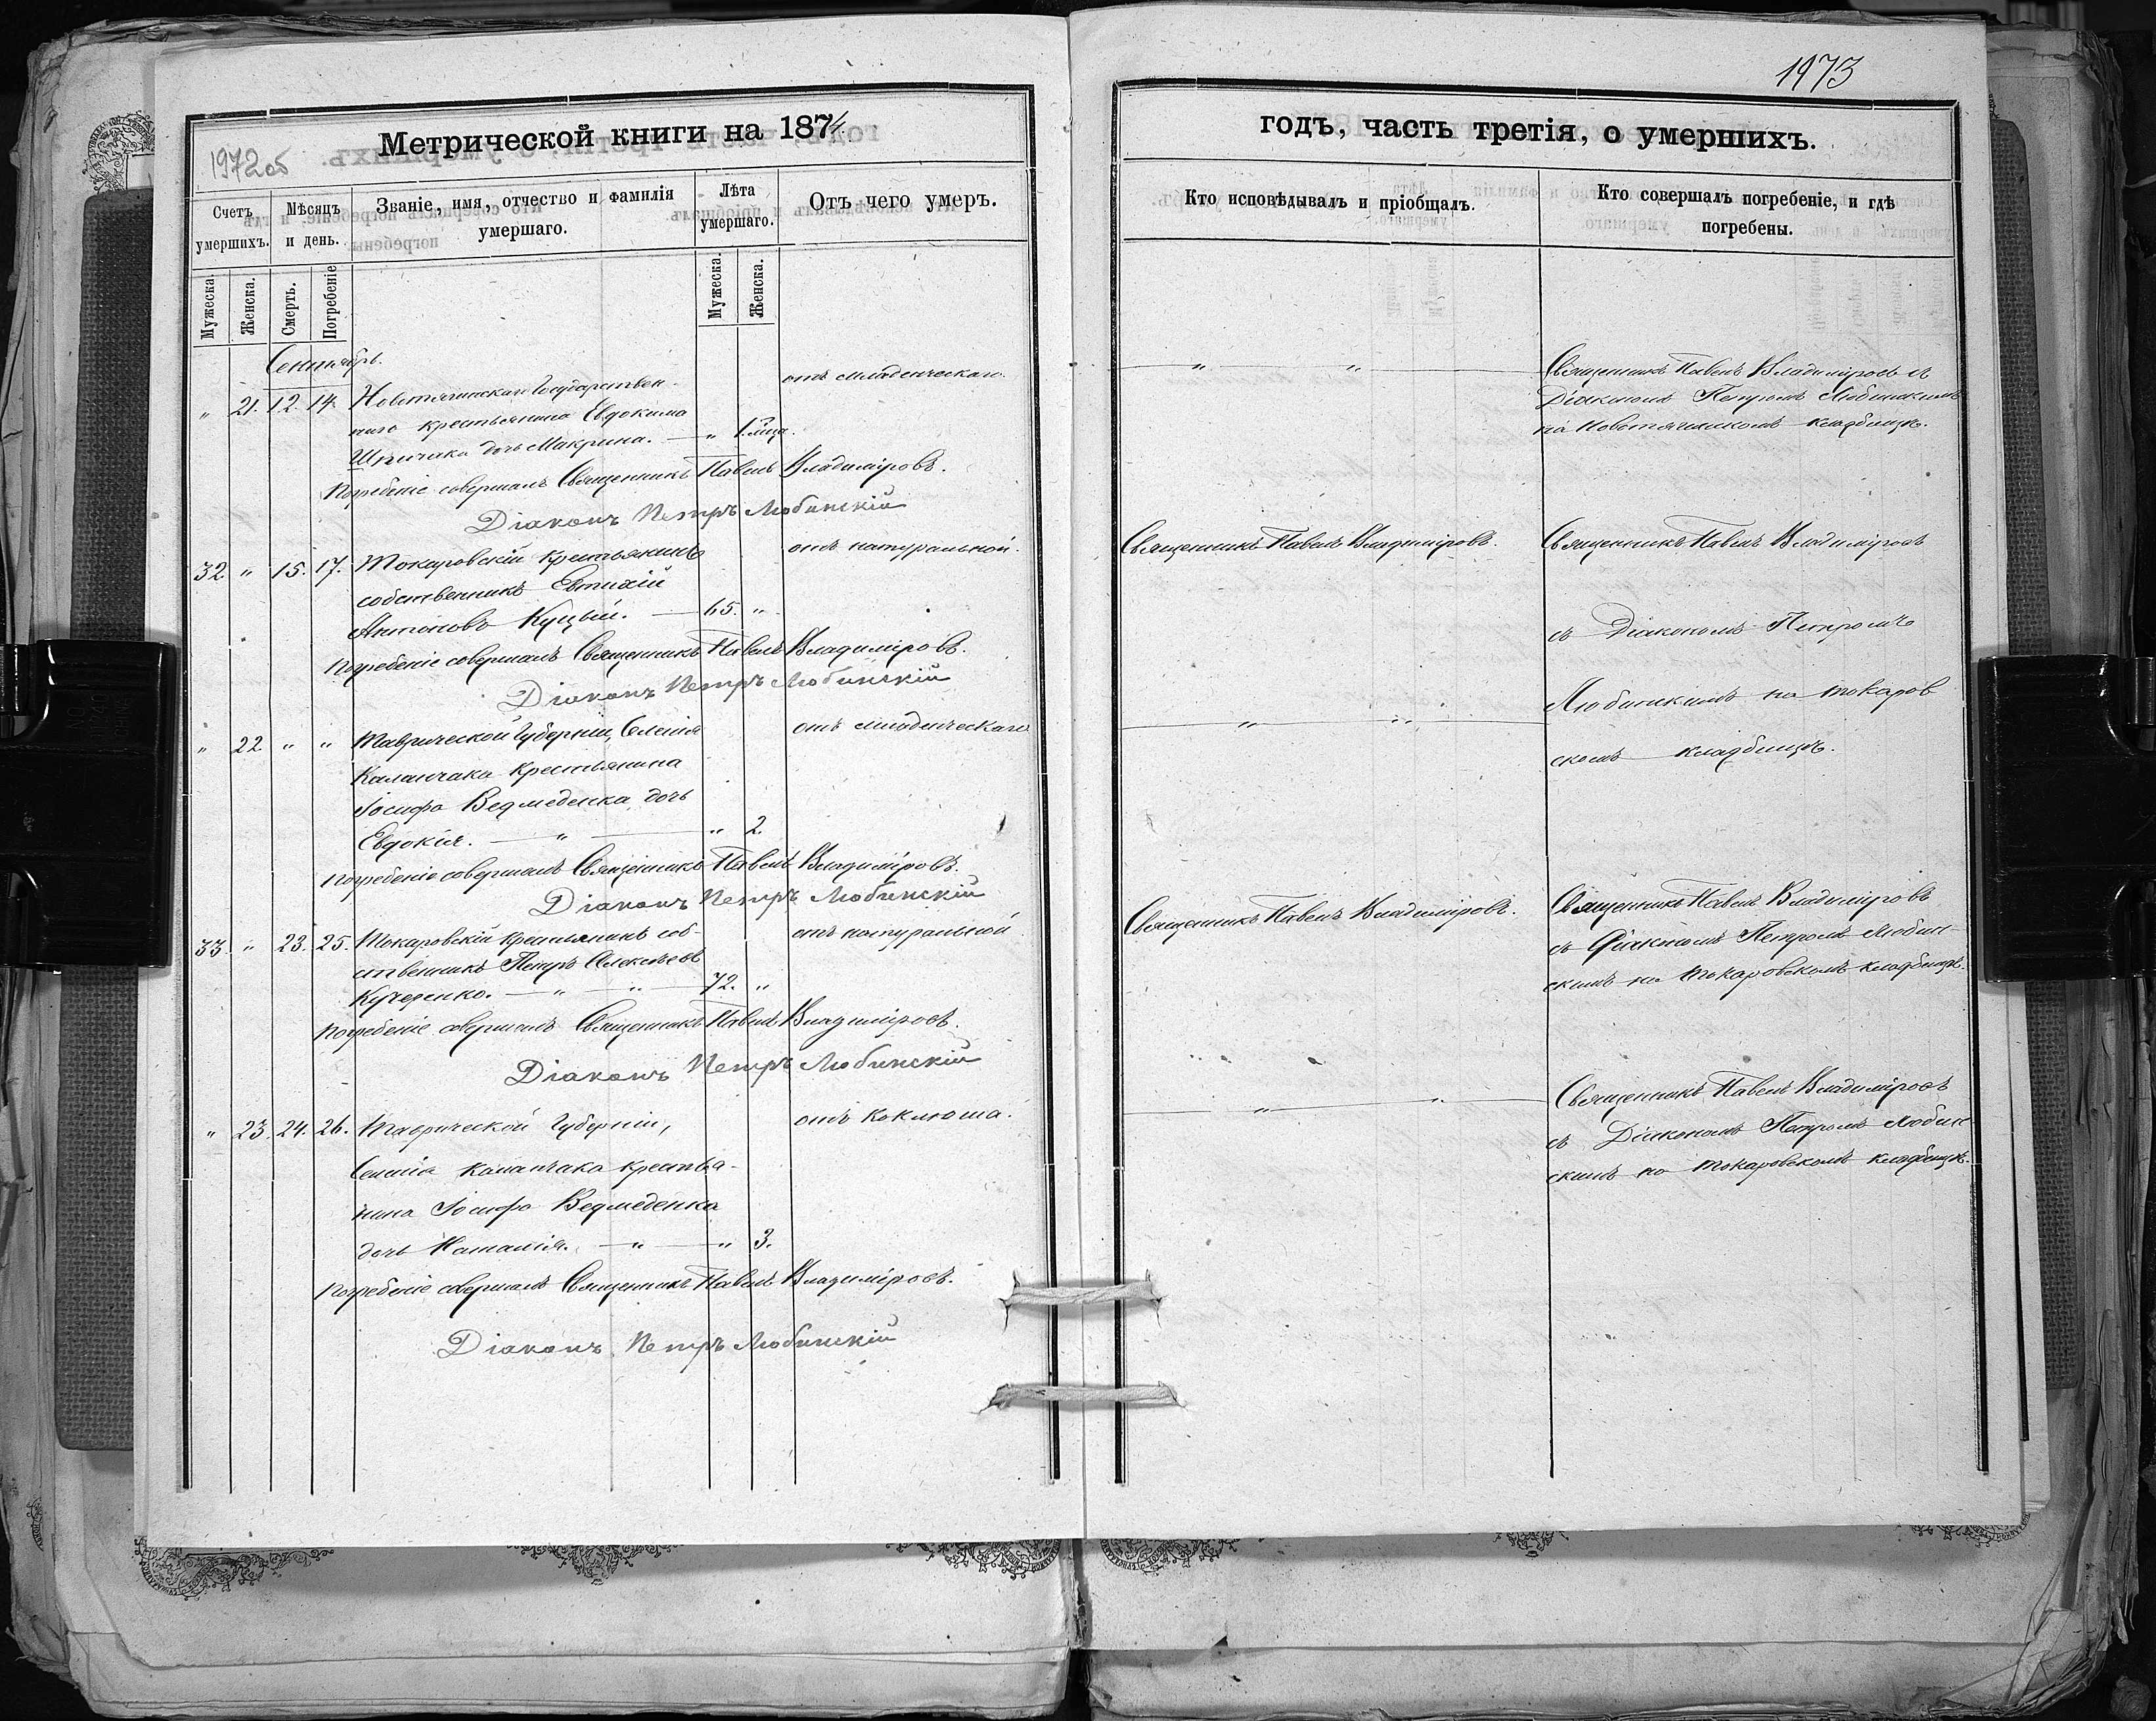 1972об
Метрической книги на 1874.
Счетъ умершихъ.
Мѣсяцъ и день.
Званіе, имя, отчество и фамилія умершаго.
Лѣта умершаго.
Отъ чего умеръ.
Мужеска.
Женска.
Смерть.
Погребеніе
Мужеска.
Женска.
Сентябрь.
" 21. 12. 14. Новотягинскаго Государствен- отъ младенческаго.
наго крестьянина Евдокима
Шпичака дочь Макрина. — " 1. мѣца.
Погребеніе совершалъ Священникъ Павелъ Владиміровъ.
Діаконъ Петръ Любинскій
32. " 15. 17. Токаровскій крестьянинъ отъ натуральной.
собственникъ Евтихій
Антоновъ Куцый. — 65. "
Погребеніе совершалъ Священникъ Павелъ Владиміровъ.
Діаконъ Петръ Любинскій
" 22 " " Таврической Губерніи, Селенія отъ младенческаго
Каланчака крестьянина
Іосифа Ведмеденка дочь
Евдокія. — " — " 2.
Погребеніе совершалъ Священникъ Павелъ Владиміровъ.
Діаконъ Петръ Любинскій
33. " 23. 25. Токаровскій крестьянинъ соб- отъ натуральной
ственникъ Петръ Алексѣевъ
Кучеренко. — " — " — 72. "
Погребеніе совершалъ Священникъ Павелъ Владиміровъ.
Діаконъ Петръ Любинскій
" 23. 24. 26. Таврической Губерніи, отъ коклюша.
Селенія Каланчака крестья-
нина Іосифа Ведмеденка
дочь Наталія. — " — " 3.
Погребеніе совершалъ Священникъ Павелъ Владиміровъ.
Діаконъ Петръ Любинскій
1973
годъ, часть третія, о умершихъ.
Кто исповѣдывалъ и пріобщалъ.
Кто совершалъ погребеніе, и гдѣ
погребены.
— " — " — Священникъ Павелъ Владиміровъ съ
Діакономъ Петромъ Любинскимъ
на Новотягинскомъ кладбищѣ.
Священникъ Павелъ Владиміровъ. Священникъ Павелъ Владиміровъ
съ Діакономъ Петромъ
Любинскимъ на Токаров
— " — " —
скомъ кладбищѣ.
Священникъ Павелъ Владиміровъ. Священникъ Павелъ Владиміровъ
съ Діакономъ Петромъ Любин-
скимъ на Токаровскомъ кладбищѣ.
— " — " — Священникъ Павелъ Владиміровъ
съ Діакономъ Петромъ Любин
скимъ на Токаровскомъ кладбищѣ.